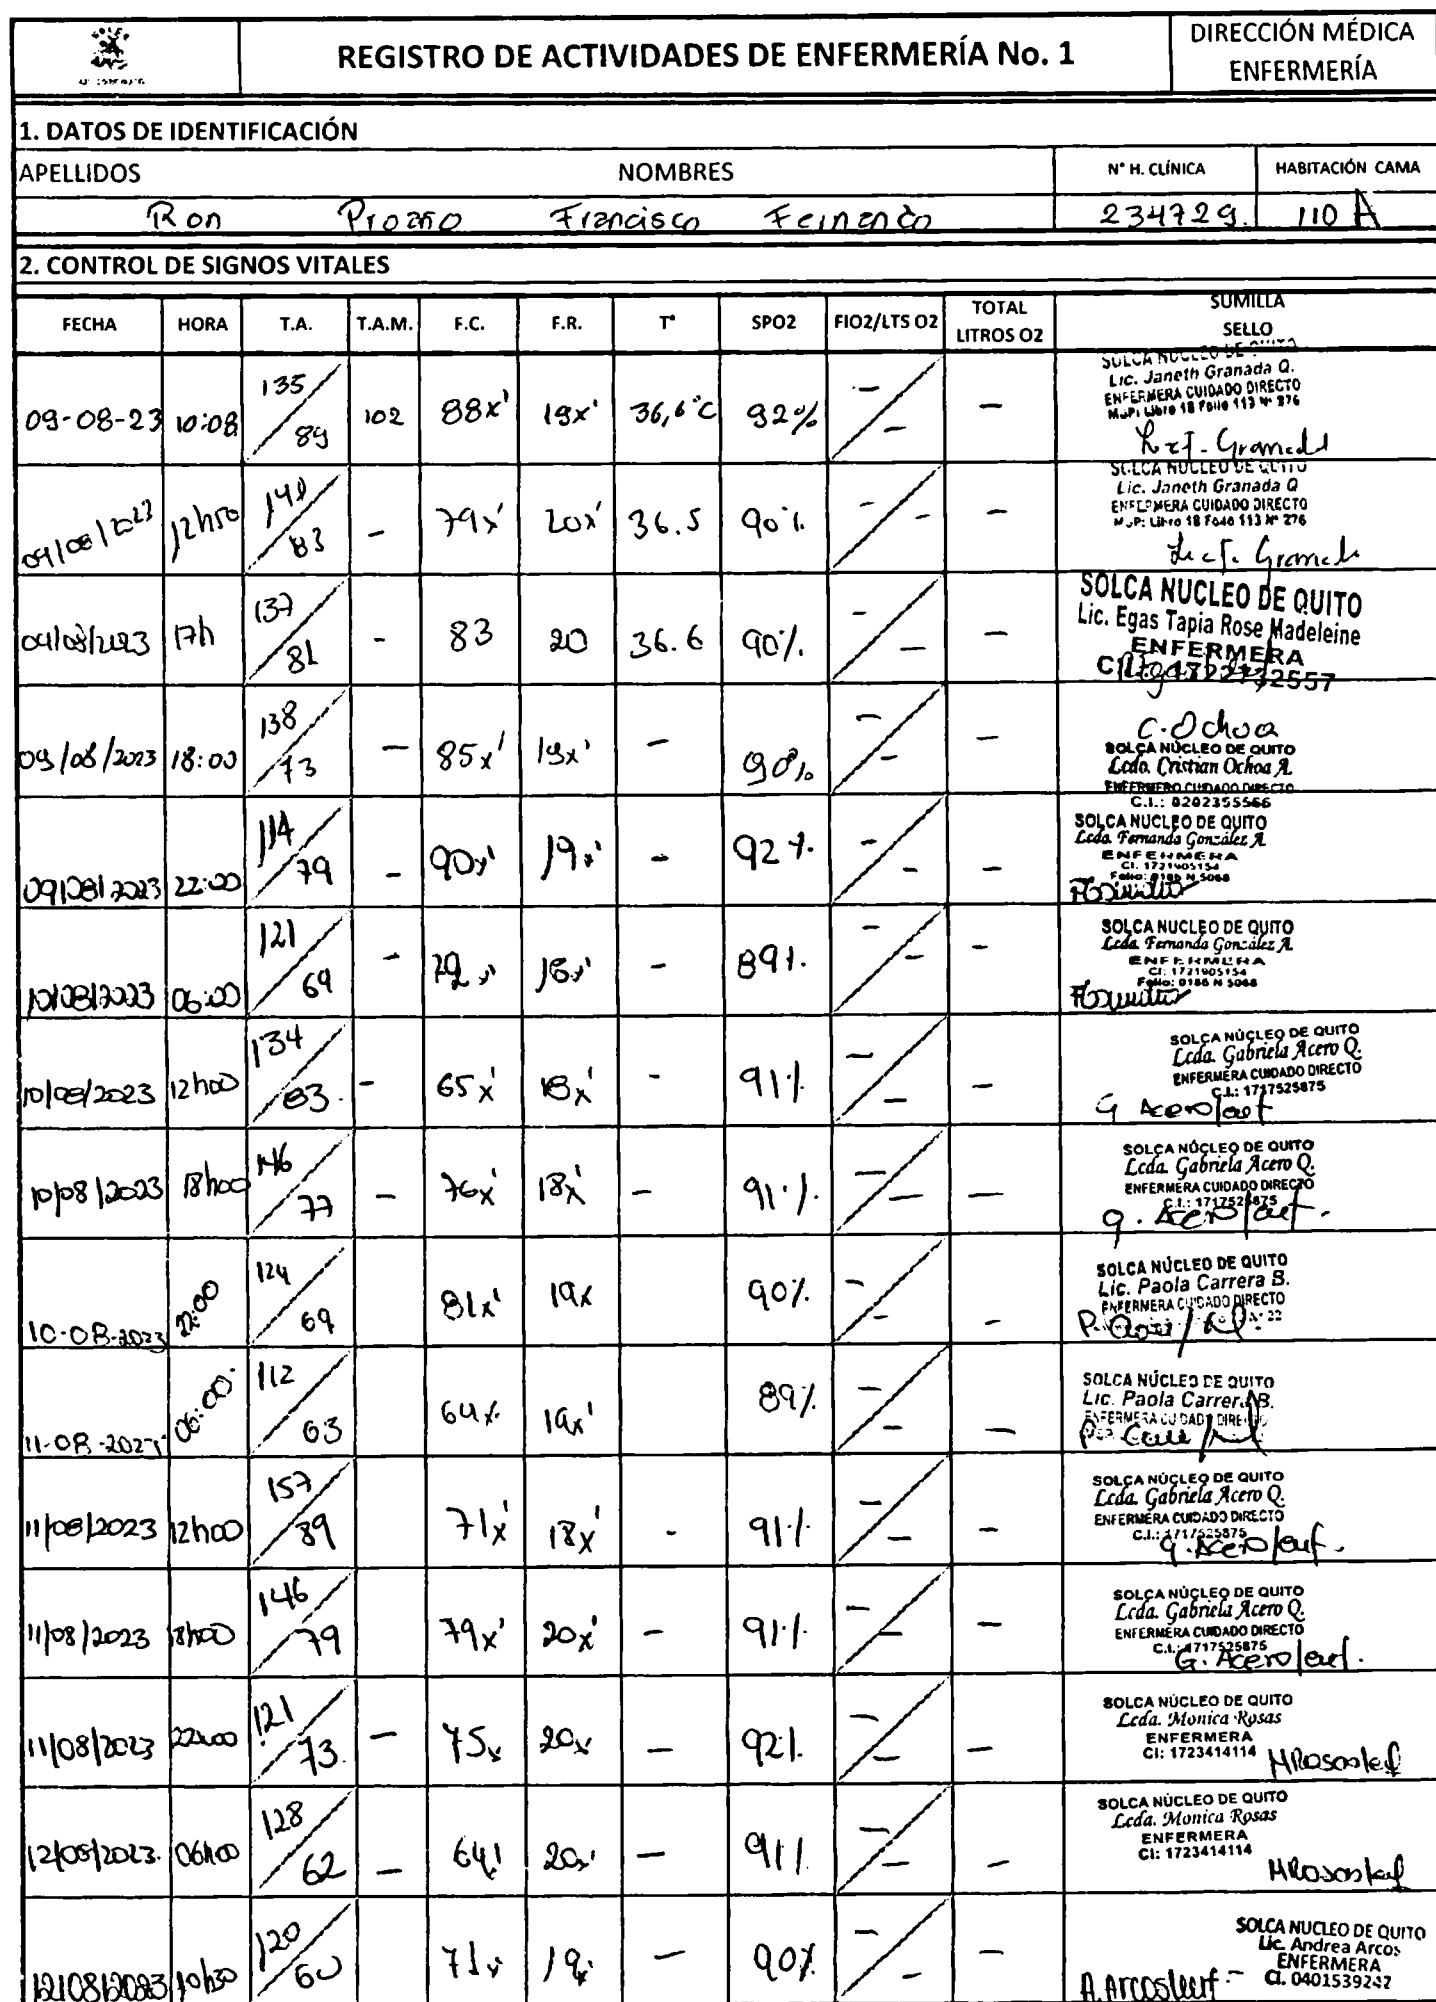 REGISTRO DE ACTIVIDADES DE ENFERMERÍA No. 1
DIRECCIÓN MÉDICA
ENFERMERÍA
1. DATOS DE IDENTIFICACIÓN
APELLIDOS NOMBRES N° H. CLÍNICA HABITACIÓN CAMA
Ron Proaño Francisco Fernando 234729. 110 A
2. CONTROL DE SIGNOS VITALES
FECHA HORA T.A. T.A.M. F.C. F.R. T° SPO2 FIO2/LTS O2 TOTAL LITROS O2 SUMILLA SELLO
09-08-23 10:08 135/89 102 88x' 19x' 36,6°C 92% - / - -
SOLCA NUCLEO DE QUITO
Lic. Janeth Granada Q.
ENFERMERA CUIDADO DIRECTO
M.S.P: Libro 18 Folio 113 N° 276
09/08/2023 12h50 141/83 - 79x' 20x' 36.5 90% - / - -
SOLCA NUCLEO DE QUITO
Lic. Janeth Granada Q
ENFERMERA CUIDADO DIRECTO
M.S.P: Libro 18 Folio 113 N° 276
09/08/2023 17h 137/81 - 83 20 36.6 90% - / - -
SOLCA NUCLEO DE QUITO
Lic. Egas Tapia Rose Madeleine
ENFERMERA
09/08/2023 18:00 138/73 - 85x' 19x' - 90% - / - -
C. Ochoa
SOLCA NÚCLEO DE QUITO
Lcdo. Cristian Ochoa A.
ENFERMERO CUIDADO DIRECTO
C.I.: 0202355566
09/08/2023 22:00 114/79 - 90x' 19x' - 92% - / - -
SOLCA NUCLEO DE QUITO
Lcda. Fernanda González A.
ENFERMERA
CI. 1721905154
Folio: 0186 N 5068
10/08/2023 06:00 121/69 - 72x' 18x' - 89% - / - -
SOLCA NUCLEO DE QUITO
Lcda. Fernanda González A.
ENFERMERA
CI: 1721905154
Folio: 0186 N 5068
10/08/2023 12h00 134/83. - 65x' 18x' - 91% - / - -
SOLCA NÚCLEO DE QUITO
Lcda. Gabriela Acero Q.
ENFERMERA CUIDADO DIRECTO
C.I.: 1717525875
G Acero/enf
10/08/2023 18h00 146/77 - 76x' 18x' - 91% - / - -
SOLCA NÚCLEO DE QUITO
Lcda. Gabriela Acero Q.
ENFERMERA CUIDADO DIRECTO
C.I.: 1717525875
G. Acero/enf.
10-08-2023 22:00 124/69 81x' 19x 90% - / - -
SOLCA NÚCLEO DE QUITO
Lic. Paola Carrera B.
ENFERMERA CUIDADO DIRECTO
11-08-2023 06:00 112/63 64x 19x' 89% - / - -
SOLCA NÚCLEO DE QUITO
Lic. Paola Carrera B.
ENFERMERA CUIDADO DIRECTO
11/08/2023 12h00 157/89 71x' 18x' - 91% - / - -
SOLCA NÚCLEO DE QUITO
Lcda. Gabriela Acero Q.
ENFERMERA CUIDADO DIRECTO
C.I.: 1717525875
G. Acero/enf.
11/08/2023 18h00 146/79 79x' 20x' - 91% - / - -
SOLCA NÚCLEO DE QUITO
Lcda. Gabriela Acero Q.
ENFERMERA CUIDADO DIRECTO
C.I.: 1717525875
G. Acero/enf.
11/08/2023 22h00 121/73. - 75x 20x - 92% - / - -
SOLCA NÚCLEO DE QUITO
Lcda. Monica Rosas
ENFERMERA
CI: 1723414114
MRosas/enf
12/08/2023. 06h00 128/62 - 64x' 20x' - 91% - / - -
SOLCA NÚCLEO DE QUITO
Lcda. Monica Rosas
ENFERMERA
CI: 1723414114
MRosas/enf
12/08/2023 10h30 120/60 71x 19x - 90% - / - -
SOLCA NUCLEO DE QUITO
Lic. Andrea Arcos
ENFERMERA
CI. 0401539242
A. Arcos/enf -